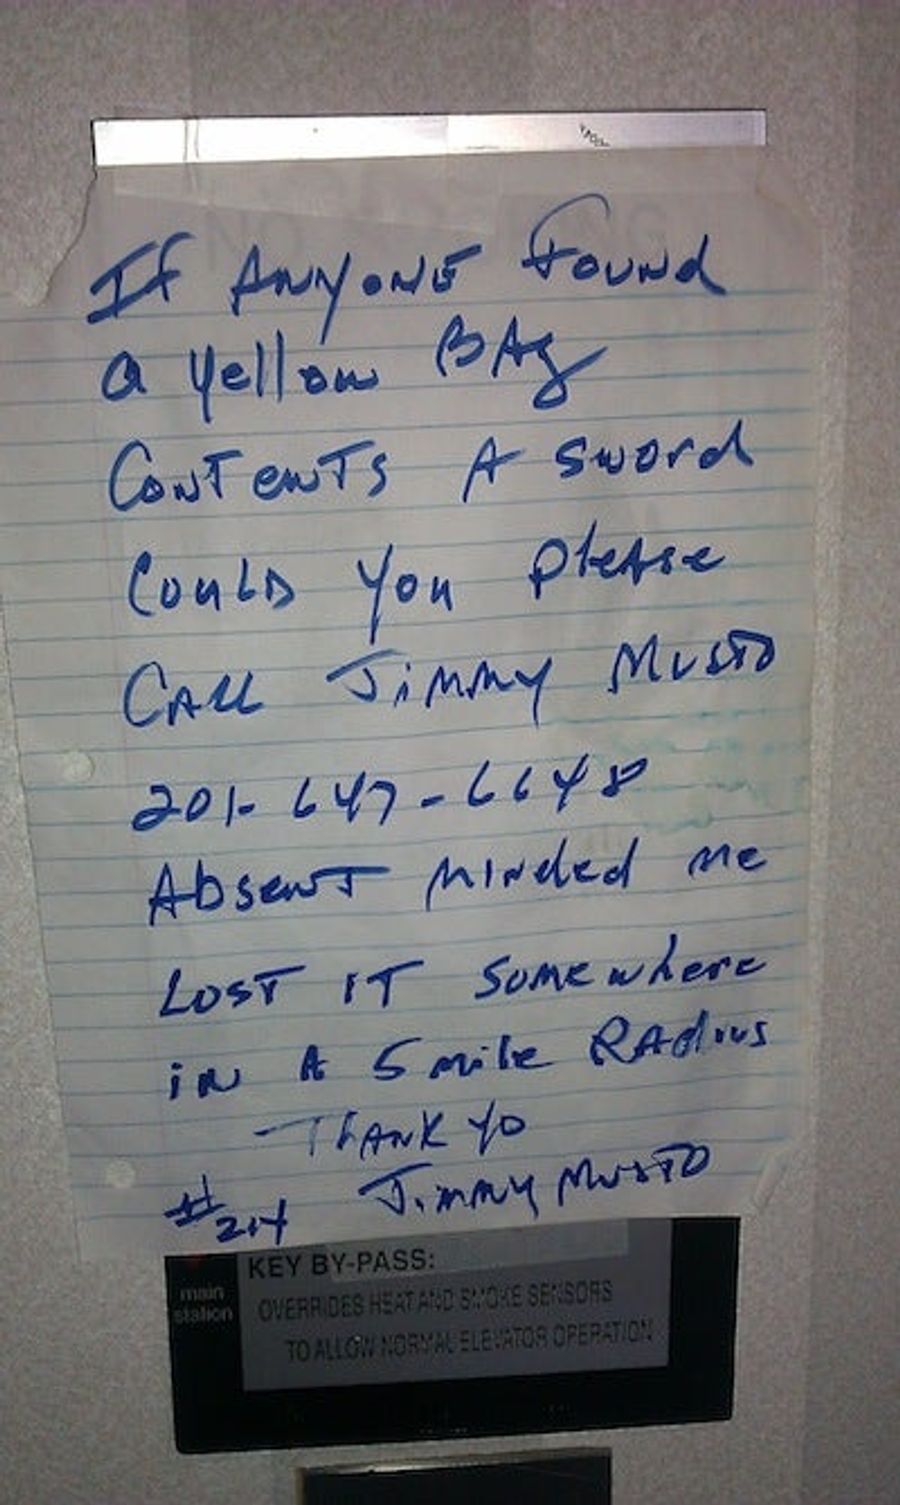 If ANYONE Found
a yellow BAg
ConTenTs A sword
Could You please
CAll Jimmy Musto
201-647-6648
Absent minded me
LOST IT Somewhere
in A 5 mile RAdius
THANK YO
#214 Jimmy Musto
KEY BY-PASS:
main
station
OVERRIDES HEAT AND SMOKE SENSORS
TO ALLOW NORMAL ELEVATOR OPERATION